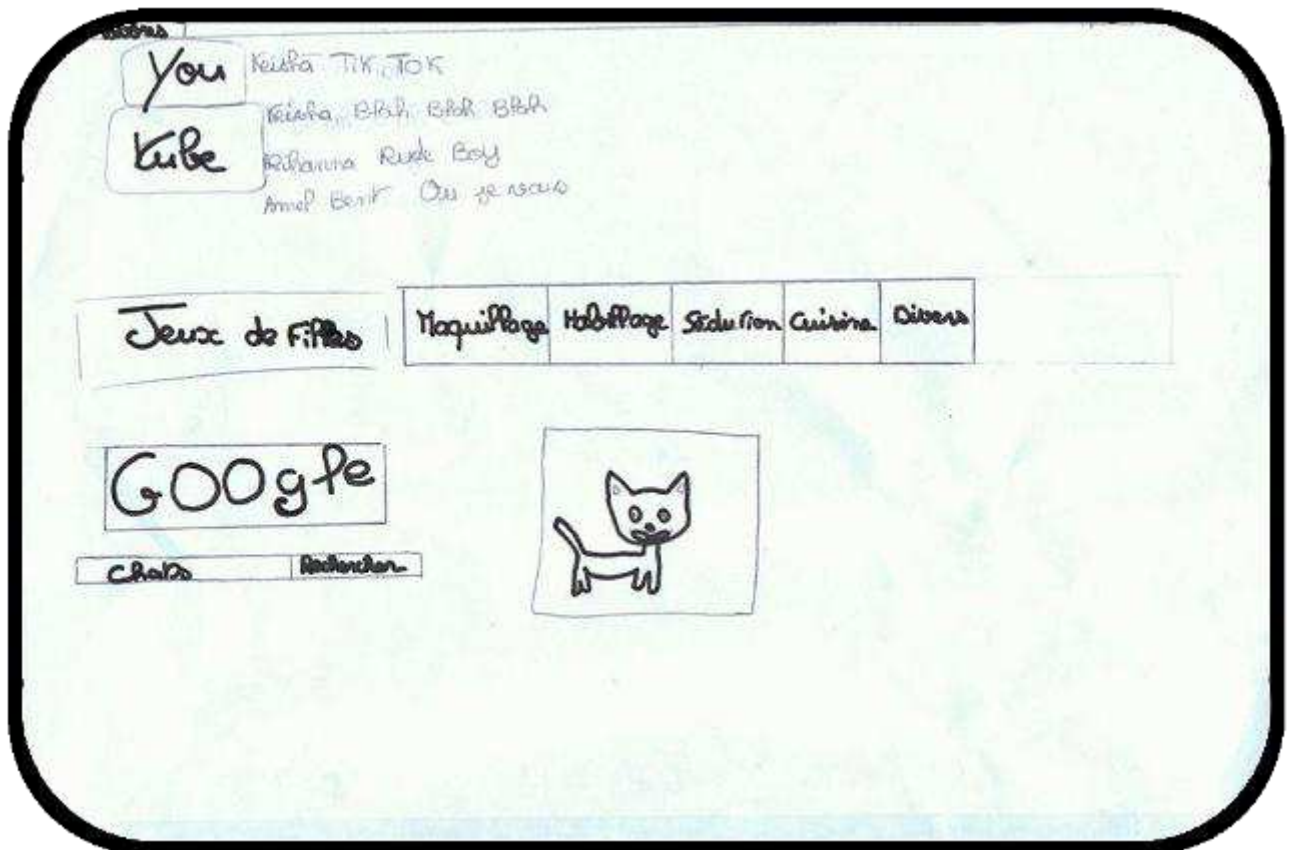 You
Keisha TIK TOK
Keisha, Blah Blah Blah
Tube
Rihanna Rude Boy
Amel Bent Ou je vais
Jeux de Filles
Maquillage Habillage Séduction Cuisine Divers
GOOgle
Chats Rechercher